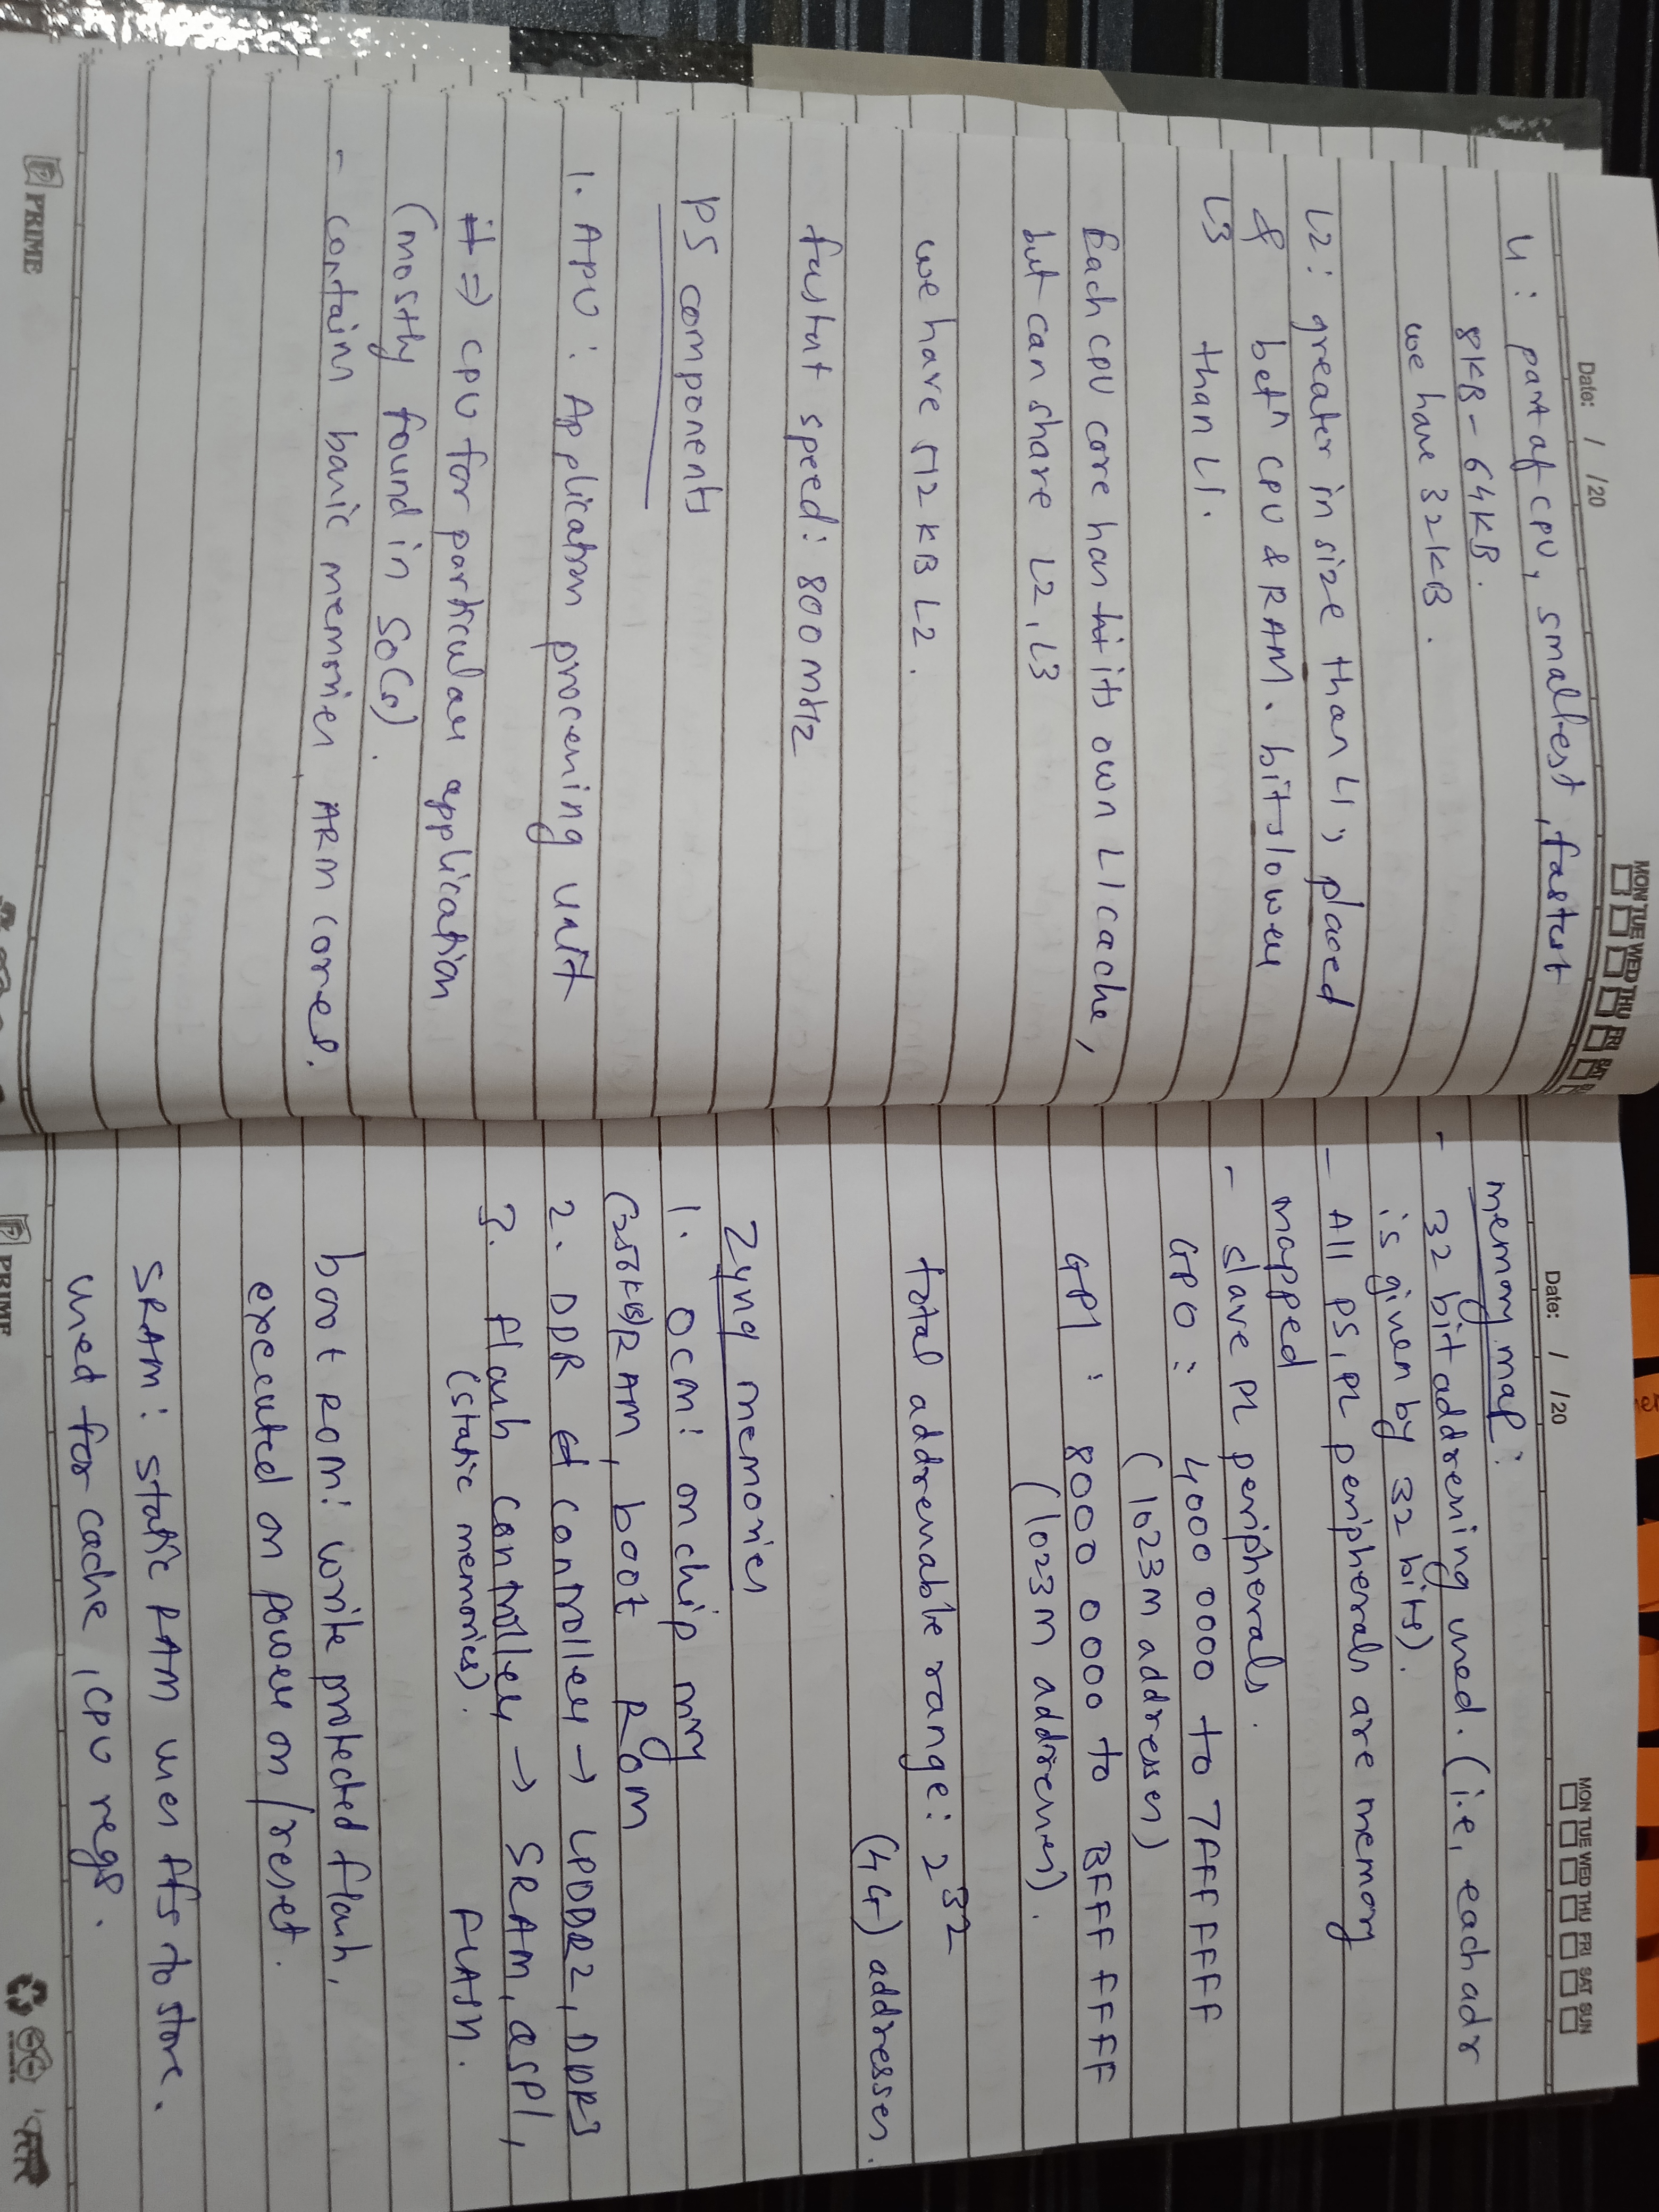 Date: / /20
MON TUE WED THU FRI SAT
L1 : part of cpu, smallest, fastest
8KB - 64KB.
we have 32KB.
L2 : greater in size than L1, placed
& betn cpu & RAM. bit slower
L3 than L1.
Each cpu core has its own L1 cache,
but can share L2, L3
we have 512 KB L2.
fastest speed : 800 MHz
PS components
1. APU : Application processing unit
⇒ cpu for particular application
(mostly found in SoCs).
- contains basic memories ARM cores.
PRIME
Date: / /20
MON TUE WED THU FRI SAT SUN
memory map :
- 32 bit addressing used. (i.e, each adr
is given by 32 bits).
- All PS, PL peripherals are memory
mapped
- slave PL peripherals.
GP0 : 4000 0000 to 7FFF FFFF
(1023M addresses)
GP1 : 8000 0000 to BFFF FFFF
(1023M addresses).
total addressable range : 2^32
(4G) addresses.
Zynq memories
1. OCM : on chip mry
(256KB) RAM, boot ROM
2. DDR controller → LPDDR2, DDR3
3. flash controller → SRAM, QSPI,
(static memories). FLASH.
boot ROM : write protected flash,
executed on power on / reset.
SRAM : static RAM uses ffs to store.
used for cache, cpu regs.
PRIME